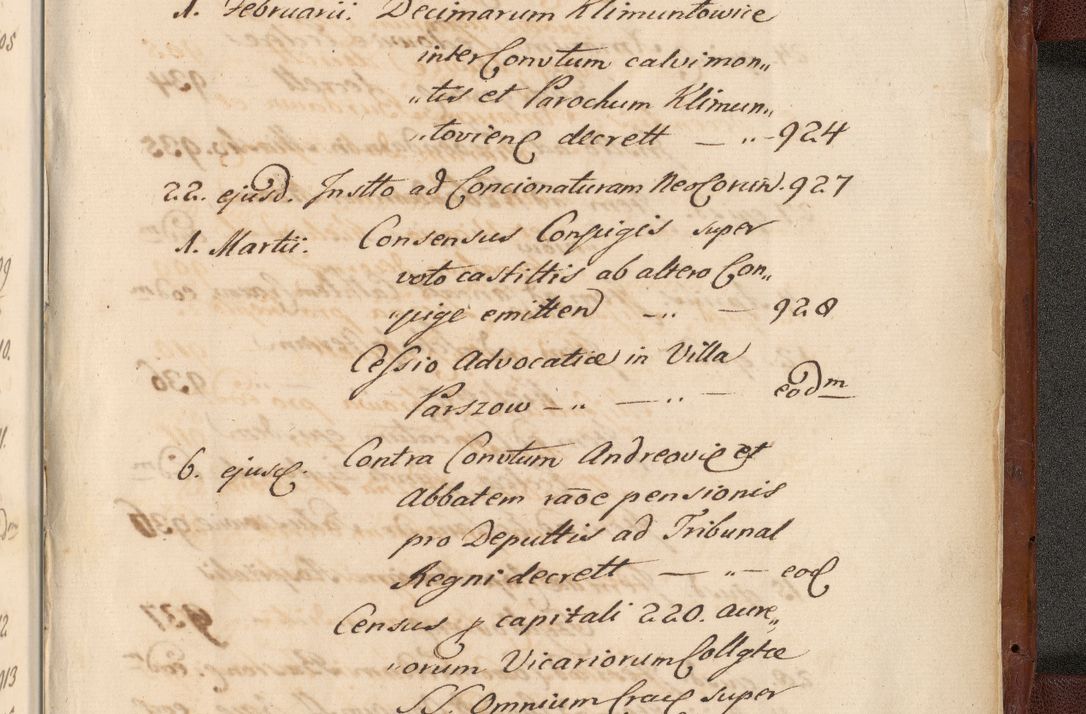 1. Februarii. Decimarum Klimuntowice
inter Convtum calvimon„
„tis et Parochum Klimun„
„tovienę decrett — „ - 924
22. ejusd. Instto ad Concionaturam NeoCorcin. 927
1. Martii. Consensus Conjugis super
voto castittis ab altero Con„
„juge emittend — „ — 928
Cessio Advocatiæ in Villa
Parszow — „ — „ — eodm
6. ejusd. Contra Convtum Andreovię et
Abbatem raõe pensionis
pro Deputtis ad Tribunal
Regni decrett — „ — eod
Census p capitali 220. aure„
„orum Vicariorum Collgtæ
SS. Omnium Crac super